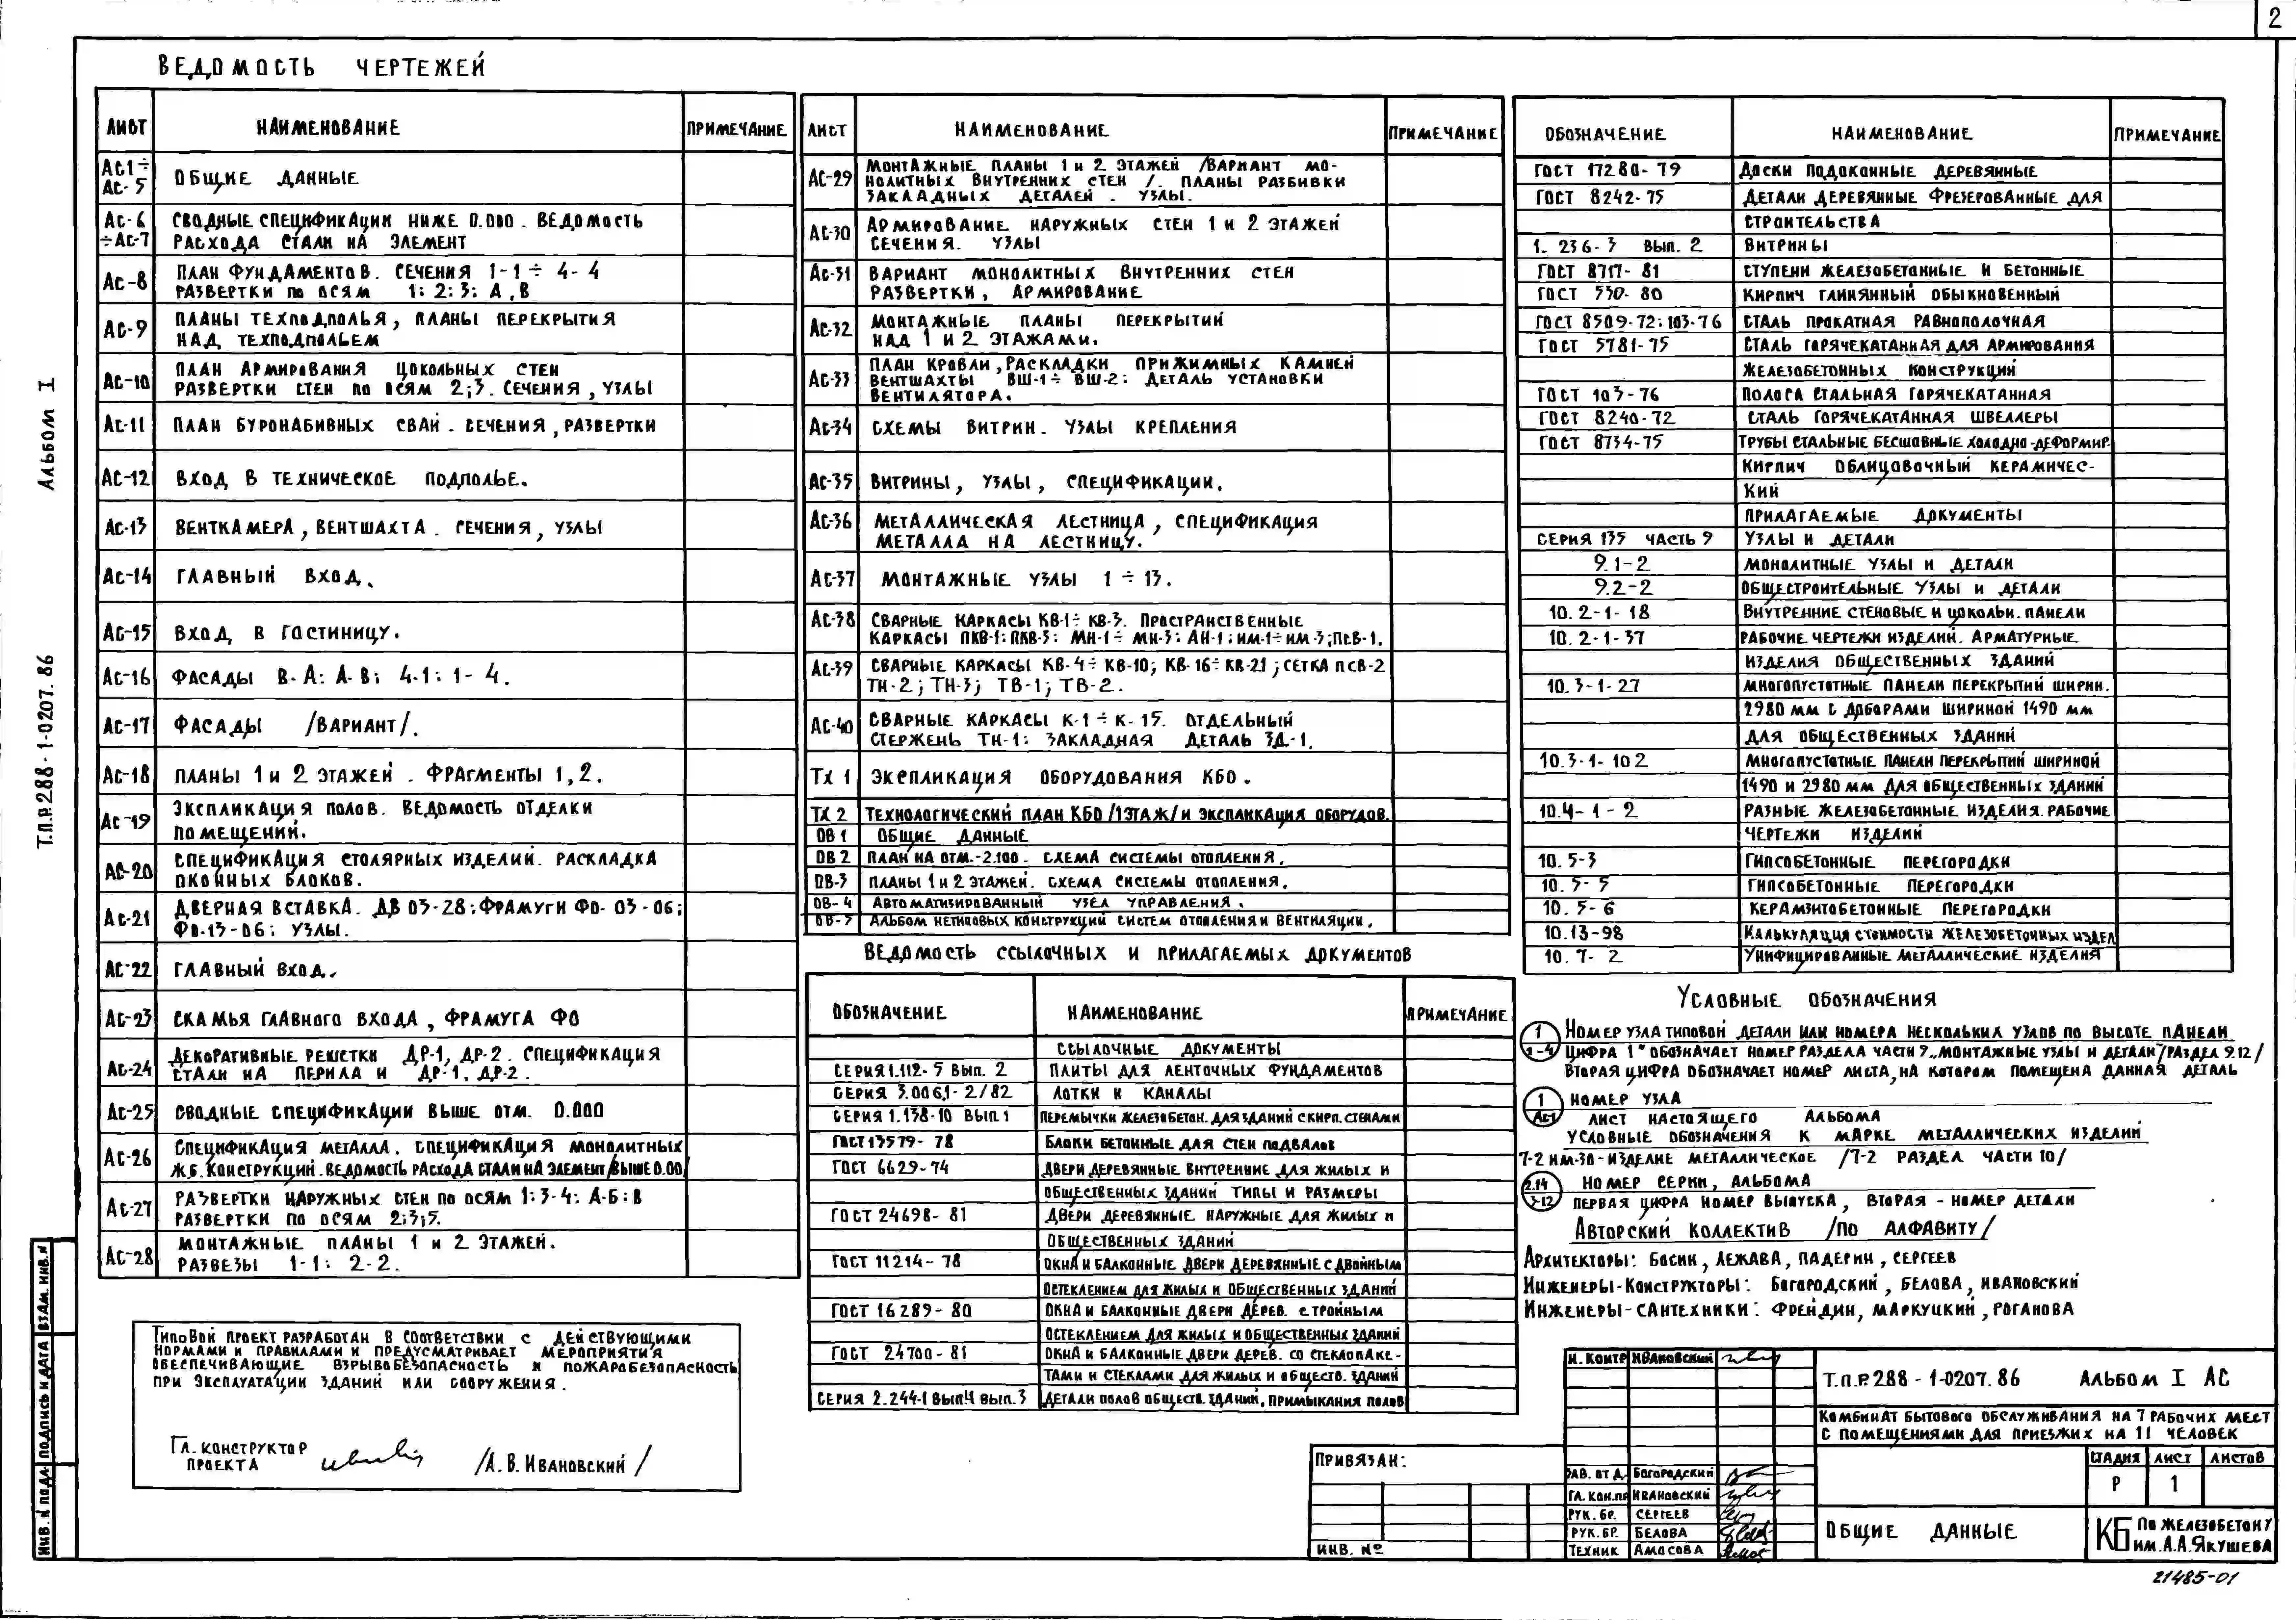 2
ВЕДОМОСТЬ ЧЕРТЕЖЕЙ
ЛИСТ НАИМЕНОВАНИЕ ПРИМЕЧАНИЕ
АС1÷ АС-5 ОБЩИЕ ДАННЫЕ
АС-6 СВОДНЫЕ СПЕЦИФИКАЦИИ НИЖЕ 0.000. ВЕДОМОСТЬ
÷АС-7 РАСХОДА СТАЛИ НА ЭЛЕМЕНТ
АС-8 ПЛАН ФУНДАМЕНТОВ. СЕЧЕНИЯ 1-1÷4-4
РАЗВЕРТКИ ПО ОСЯМ 1; 2; 3; А, В
АС-9 ПЛАНЫ ТЕХПОДПОЛЬЯ, ПЛАНЫ ПЕРЕКРЫТИЯ
НАД ТЕХПОДПОЛЬЕМ
АС-10 ПЛАН АРМИРОВАНИЯ ЦОКОЛЬНЫХ СТЕН
РАЗВЕРТКИ СТЕН ПО ОСЯМ 2;3. СЕЧЕНИЯ, УЗЛЫ
АС-11 ПЛАН БУРОНАБИВНЫХ СВАЙ. СЕЧЕНИЯ, РАЗВЕРТКИ
АС-12 ВХОД В ТЕХНИЧЕСКОЕ ПОДПОЛЬЕ.
АС-13 ВЕНТКАМЕРА, ВЕНТШАХТА. СЕЧЕНИЯ, УЗЛЫ
АС-14 ГЛАВНЫЙ ВХОД.
АС-15 ВХОД В ГОСТИНИЦУ.
АС-16 ФАСАДЫ В-А; А-В; 4-1; 1-4.
АС-17 ФАСАДЫ /ВАРИАНТ/.
АС-18 ПЛАНЫ 1 и 2 ЭТАЖЕЙ. ФРАГМЕНТЫ 1,2.
АС-19 ЭКСПЛИКАЦИЯ ПОЛОВ. ВЕДОМОСТЬ ОТДЕЛКИ
ПОМЕЩЕНИЙ.
АС-20 СПЕЦИФИКАЦИЯ СТОЛЯРНЫХ ИЗДЕЛИЙ. РАСКЛАДКА
ОКОННЫХ БЛОКОВ.
АС-21 ДВЕРНАЯ ВСТАВКА. ДВ 03-28; ФРАМУГИ ФО-03-06;
ФО-13-06; УЗЛЫ.
АС-22 ГЛАВНЫЙ ВХОД.
АС-23 СКАМЬЯ ГЛАВНОГО ВХОДА, ФРАМУГА ФО
АС-24 ДЕКОРАТИВНЫЕ РЕШЕТКИ ДР-1, ДР-2. СПЕЦИФИКАЦИЯ
СТАЛИ НА ПЕРИЛА И ДР-1, ДР-2.
АС-25 СВОДНЫЕ СПЕЦИФИКАЦИИ ВЫШЕ ОТМ. 0.000
АС-26 СПЕЦИФИКАЦИЯ МЕТАЛЛА. СПЕЦИФИКАЦИЯ МОНОЛИТНЫХ
Ж.Б. КОНСТРУКЦИЙ. ВЕДОМОСТЬ РАСХОДА СТАЛИ НА ЭЛЕМЕНТ/ВЫШЕ 0.00/
АС-27 РАЗВЕРТКИ НАРУЖНЫХ СТЕН ПО ОСЯМ 1; 3-4; А-Б; В
РАЗВЕРТКИ ПО ОСЯМ 2;3;5.
АС-28 МОНТАЖНЫЕ ПЛАНЫ 1 и 2 ЭТАЖЕЙ.
РАЗРЕЗЫ 1-1; 2-2.
ТИПОВОЙ ПРОЕКТ РАЗРАБОТАН В СООТВЕТСТВИИ С ДЕЙСТВУЮЩИМИ
НОРМАМИ И ПРАВИЛАМИ И ПРЕДУСМАТРИВАЕТ МЕРОПРИЯТИЯ
ОБЕСПЕЧИВАЮЩИЕ ВЗРЫВОБЕЗОПАСНОСТЬ И ПОЖАРОБЕЗОПАСНОСТЬ
ПРИ ЭКСПЛУАТАЦИИ ЗДАНИЙ ИЛИ СООРУЖЕНИЯ.
ГЛ. КОНСТРУКТОР
ПРОЕКТА /А.В. ИВАНОВСКИЙ/
ЛИСТ НАИМЕНОВАНИЕ ПРИМЕЧАНИЕ
АС-29 МОНТАЖНЫЕ ПЛАНЫ 1 и 2 ЭТАЖЕЙ /ВАРИАНТ МО-
НОЛИТНЫХ ВНУТРЕННИХ СТЕН /. ПЛАНЫ РАЗБИВКИ
ЗАКЛАДНЫХ ДЕТАЛЕЙ. УЗЛЫ.
АС-30 АРМИРОВАНИЕ НАРУЖНЫХ СТЕН 1 и 2 ЭТАЖЕЙ
СЕЧЕНИЯ. УЗЛЫ
АС-31 ВАРИАНТ МОНОЛИТНЫХ ВНУТРЕННИХ СТЕН
РАЗВЕРТКИ, АРМИРОВАНИЕ
АС-32 МОНТАЖНЫЕ ПЛАНЫ ПЕРЕКРЫТИЙ
НАД 1 И 2 ЭТАЖАМИ.
АС-33 ПЛАН КРОВЛИ, РАСКЛАДКИ ПРИЖИМНЫХ КАМНЕЙ
ВЕНТШАХТЫ ВШ-1÷ВШ-2; ДЕТАЛЬ УСТАНОВКИ
ВЕНТИЛЯТОРА.
АС-34 СХЕМЫ ВИТРИН. УЗЛЫ КРЕПЛЕНИЯ
АС-35 ВИТРИНЫ, УЗЛЫ, СПЕЦИФИКАЦИИ.
АС-36 МЕТАЛЛИЧЕСКАЯ ЛЕСТНИЦА, СПЕЦИФИКАЦИЯ
МЕТАЛЛА НА ЛЕСТНИЦУ.
АС-37 МОНТАЖНЫЕ УЗЛЫ 1÷13.
АС-38 СВАРНЫЕ КАРКАСЫ КВ-1÷КВ-3. ПРОСТРАНСТВЕННЫЕ
КАРКАСЫ ПКВ-1; ПКВ-3; МН-1÷МН-3; АН-1; НМ-1÷НМ-3; ПСВ-1.
АС-39 СВАРНЫЕ КАРКАСЫ КВ-4÷КВ-10; КВ-16÷КВ-21; СЕТКА ПСВ-2
ТН-2; ТН-3; ТВ-1; ТВ-2.
АС-40 СВАРНЫЕ КАРКАСЫ К-1÷К-15. ОТДЕЛЬНЫЙ
СТЕРЖЕНЬ ТН-1; ЗАКЛАДНАЯ ДЕТАЛЬ ЗД-1.
ТХ 1 ЭКСПЛИКАЦИЯ ОБОРУДОВАНИЯ КБО.
ТХ 2 ТЕХНОЛОГИЧЕСКИЙ ПЛАН КБО /1ЭТАЖ/ И ЭКСПЛИКАЦИЯ ОБОРУДОВ.
ОВ 1 ОБЩИЕ ДАННЫЕ
ОВ 2 ПЛАН НА ОТМ. -2.100. СХЕМА СИСТЕМЫ ОТОПЛЕНИЯ.
ОВ-3 ПЛАНЫ 1 и 2 ЭТАЖЕЙ. СХЕМА СИСТЕМЫ ОТОПЛЕНИЯ.
ОВ-4 АВТОМАТИЗИРОВАННЫЙ УЗЕЛ УПРАВЛЕНИЯ.
ОВ-5 АЛЬБОМ НЕТИПОВЫХ КОНСТРУКЦИЙ СИСТЕМ ОТОПЛЕНИЯ И ВЕНТИЛЯЦИИ.
ВЕДОМОСТЬ ССЫЛОЧНЫХ И ПРИЛАГАЕМЫХ ДОКУМЕНТОВ
ОБОЗНАЧЕНИЕ НАИМЕНОВАНИЕ ПРИМЕЧАНИЕ
ССЫЛОЧНЫЕ ДОКУМЕНТЫ
СЕРИЯ 1.112-5 ВЫП. 2 ПЛИТЫ ДЛЯ ЛЕНТОЧНЫХ ФУНДАМЕНТОВ
СЕРИЯ 3.006.1-2/82 ЛОТКИ И КАНАЛЫ
СЕРИЯ 1.138-10 ВЫП.1 ПЕРЕМЫЧКИ ЖЕЛЕЗОБЕТОН. ДЛЯ ЗДАНИЙ С КИРП. СТЕНАМИ
ГОСТ 13579-78 БЛОКИ БЕТОННЫЕ ДЛЯ СТЕН ПОДВАЛОВ
ГОСТ 6629-74 ДВЕРИ ДЕРЕВЯННЫЕ ВНУТРЕННИЕ ДЛЯ ЖИЛЫХ И
ОБЩЕСТВЕННЫХ ЗДАНИЙ ТИПЫ И РАЗМЕРЫ
ГОСТ 24698-81 ДВЕРИ ДЕРЕВЯННЫЕ НАРУЖНЫЕ ДЛЯ ЖИЛЫХ И
ОБЩЕСТВЕННЫХ ЗДАНИЙ
ГОСТ 11214-78 ОКНА И БАЛКОННЫЕ ДВЕРИ ДЕРЕВЯННЫЕ С ДВОЙНЫМ
ОСТЕКЛЕНИЕМ ДЛЯ ЖИЛЫХ И ОБЩЕСТВЕННЫХ ЗДАНИЙ
ГОСТ 16289-80 ОКНА И БАЛКОННЫЕ ДВЕРИ ДЕРЕВ. С ТРОЙНЫМ
ОСТЕКЛЕНИЕМ ДЛЯ ЖИЛЫХ И ОБЩЕСТВЕННЫХ ЗДАНИЙ
ГОСТ 24700-81 ОКНА И БАЛКОННЫЕ ДВЕРИ ДЕРЕВ. СО СТЕКЛОПАКЕ-
ТАМИ И СТЕКЛАМИ ДЛЯ ЖИЛЫХ И ОБЩЕСТВ. ЗДАНИЙ
СЕРИЯ 2.244-1 ВЫП.4 ВЫП.3 ДЕТАЛИ ПОЛОВ ОБЩЕСТВ. ЗДАНИЙ, ПРИМЫКАНИЯ ПОЛОВ
ОБОЗНАЧЕНИЕ НАИМЕНОВАНИЕ ПРИМЕЧАНИЕ
ГОСТ 17280-79 ДОСКИ ПОДОКОННЫЕ ДЕРЕВЯННЫЕ
ГОСТ 8242-75 ДЕТАЛИ ДЕРЕВЯННЫЕ ФРЕЗЕРОВАННЫЕ ДЛЯ
СТРОИТЕЛЬСТВА
1.236-3 ВЫП. 2 ВИТРИНЫ
ГОСТ 8717-81 СТУПЕНИ ЖЕЛЕЗОБЕТОННЫЕ И БЕТОННЫЕ
ГОСТ 530-80 КИРПИЧ ГЛИНЯННЫЙ ОБЫКНОВЕННЫЙ
ГОСТ 8509-72; 103-76 СТАЛЬ ПРОКАТНАЯ РАВНОПОЛОЧНАЯ
ГОСТ 5781-75 СТАЛЬ ГОРЯЧЕКАТАННАЯ ДЛЯ АРМИРОВАНИЯ
ЖЕЛЕЗОБЕТОННЫХ КОНСТРУКЦИЙ
ГОСТ 103-76 ПОЛОСА СТАЛЬНАЯ ГОРЯЧЕКАТАННАЯ
ГОСТ 8240-72 СТАЛЬ ГОРЯЧЕКАТАННАЯ ШВЕЛЛЕРЫ
ГОСТ 8734-75 ТРУБЫ СТАЛЬНЫЕ БЕСШОВНЫЕ ХОЛОДНО-ДЕФОРМИР.
КИРПИЧ ОБЛИЦОВОЧНЫЙ КЕРАМИЧЕС-
КИЙ
ПРИЛАГАЕМЫЕ ДОКУМЕНТЫ
СЕРИЯ 135 ЧАСТЬ 9 УЗЛЫ И ДЕТАЛИ
9.1-2 МОНОЛИТНЫЕ УЗЛЫ И ДЕТАЛИ
9.2-2 ОБЩЕСТРОИТЕЛЬНЫЕ УЗЛЫ И ДЕТАЛИ
10.2-1-18 ВНУТРЕННИЕ СТЕНОВЫЕ И ЦОКОЛЬН. ПАНЕЛИ
10.2-1-37 РАБОЧИЕ ЧЕРТЕЖИ ИЗДЕЛИЙ. АРМАТУРНЫЕ
ИЗДЕЛИЯ ОБЩЕСТВЕННЫХ ЗДАНИЙ
10.3-1-27 МНОГОПУСТОТНЫЕ ПАНЕЛИ ПЕРЕКРЫТИЙ ШИРИН.
2980 ММ С ДОБОРАМИ ШИРИНОЙ 1490 ММ
ДЛЯ ОБЩЕСТВЕННЫХ ЗДАНИЙ
10.3-1-102 МНОГОПУСТОТНЫЕ ПАНЕЛИ ПЕРЕКРЫТИЙ ШИРИНОЙ
1490 И 2980 ММ ДЛЯ ОБЩЕСТВЕННЫХ ЗДАНИЙ
10.4-1-2 РАЗНЫЕ ЖЕЛЕЗОБЕТОННЫЕ ИЗДЕЛИЯ. РАБОЧИЕ
ЧЕРТЕЖИ ИЗДЕЛИЙ
10.5-3 ГИПСОБЕТОННЫЕ ПЕРЕГОРОДКИ
10.5-5 ГИПСОБЕТОННЫЕ ПЕРЕГОРОДКИ
10.5-6 КЕРАМЗИТОБЕТОННЫЕ ПЕРЕГОРОДКИ
10.13-98 КАЛЬКУЛЯЦИЯ СТОИМОСТИ ЖЕЛЕЗОБЕТОННЫХ ИЗДЕЛ
10.7-2 УНИФИЦИРОВАННЫЕ МЕТАЛЛИЧЕСКИЕ ИЗДЕЛИЯ
УСЛОВНЫЕ ОБОЗНАЧЕНИЯ
1 НОМЕР УЗЛА ТИПОВОЙ ДЕТАЛИ ИЛИ НОМЕРА НЕСКОЛЬКИХ УЗЛОВ ПО ВЫСОТЕ ПАНЕЛИ
1-4 ЦИФРА 1" ОБОЗНАЧАЕТ НОМЕР РАЗДЕЛА ЧАСТИ 9 „МОНТАЖНЫЕ УЗЛЫ И ДЕТАЛИ" /РАЗДЕЛ 9.12/
ВТОРАЯ ЦИФРА ОБОЗНАЧАЕТ НОМЕР ЛИСТА, НА КОТОРОМ ПОМЕЩЕНА ДАННАЯ ДЕТАЛЬ
1 НОМЕР УЗЛА
АС-1 ЛИСТ НАСТОЯЩЕГО АЛЬБОМА
УСЛОВНЫЕ ОБОЗНАЧЕНИЯ К МАРКЕ МЕТАЛЛИЧЕСКИХ ИЗДЕЛИЙ
7-2 НМ-30 - ИЗДЕЛИЕ МЕТАЛЛИЧЕСКОЕ /7-2 РАЗДЕЛ ЧАСТИ 10/
2.14 НОМЕР СЕРИИ, АЛЬБОМА
3-12 ПЕРВАЯ ЦИФРА НОМЕР ВЫПУСКА, ВТОРАЯ - НОМЕР ДЕТАЛИ
АВТОРСКИЙ КОЛЛЕКТИВ /ПО АЛФАВИТУ/
АРХИТЕКТОРЫ: БОСИН, ЛЕЖАВА, ПАДЕРИН, СЕРГЕЕВ
ИНЖЕНЕРЫ-КОНСТРУКТОРЫ: БОГОРОДСКИЙ, БЕЛОВА, ИВАНОВСКИЙ
ИНЖЕНЕРЫ-САНТЕХНИКИ: ФРЕЙДИН, МАРКУЦКИЙ, РОГАНОВА
ПРИВЯЗАН:
ИНВ. №
Н. КОНТР ИВАНОВСКИЙ
ЗАВ. ОТ Д. БОГОРОДСКИЙ
ГЛ. КОН.ПР ИВАНОВСКИЙ
РУК. БР. СЕРГЕЕВ
РУК. БР. БЕЛОВА
ТЕХНИК АМОСОВА
Т.П.Р. 288-1-0207.86 АЛЬБОМ I АС
КОМБИНАТ БЫТОВОГО ОБСЛУЖИВАНИЯ НА 7 РАБОЧИХ МЕСТ
С ПОМЕЩЕНИЯМИ ДЛЯ ПРИЕЗЖИХ НА 11 ЧЕЛОВЕК
СТАДИЯ ЛИСТ ЛИСТОВ
Р 1
ОБЩИЕ ДАННЫЕ
КБ ПО ЖЕЛЕЗОБЕТОНУ
ИМ. А.А. ЯКУШЕВА
21485-01
Т.П.Р. 288-1-0207.86 АЛЬБОМ I
ИНВ. № ПОДЛ. ПОДПИСЬ И ДАТА ВЗАМ. ИНВ. №